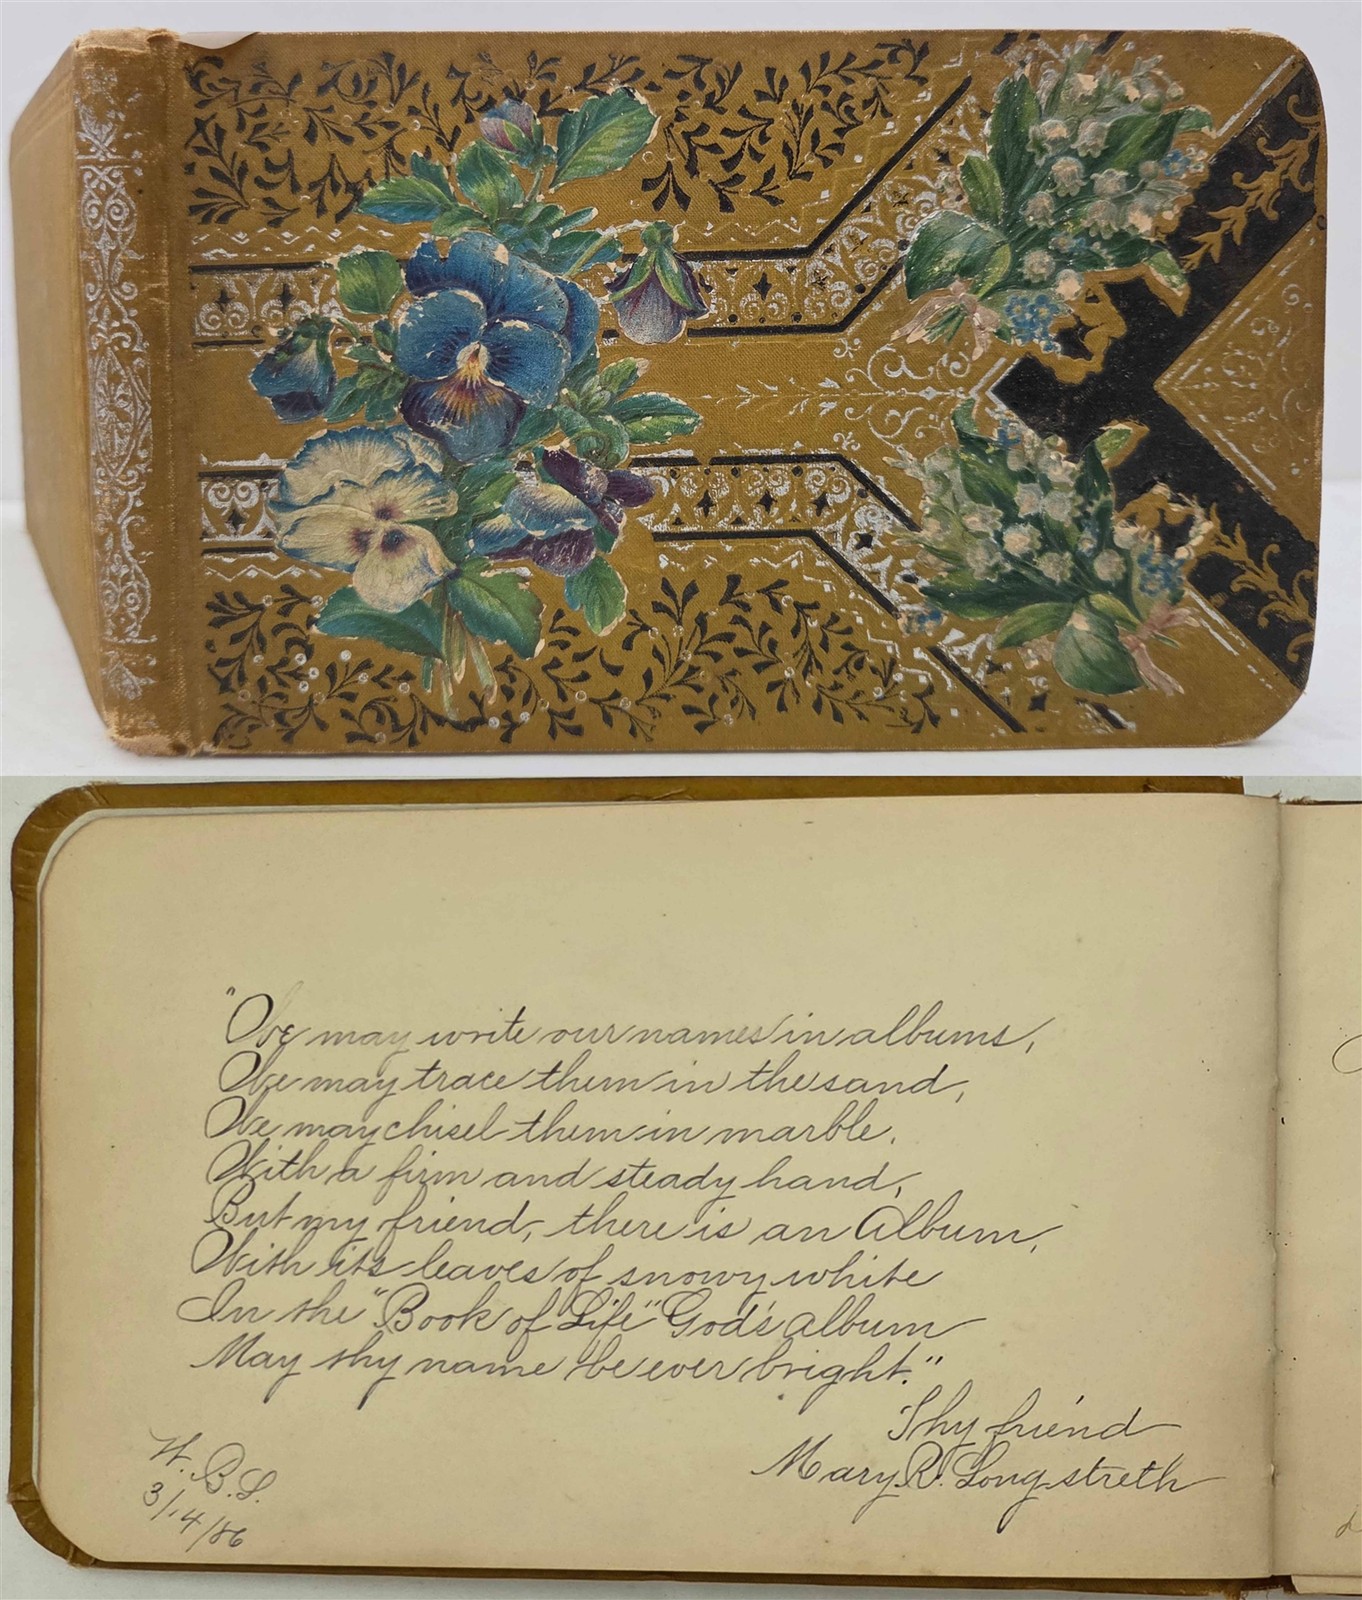 "We may write our names in albums,
We may trace them in the sand,
We may chisel them in marble,
With a firm and steady hand,
But my friend, there is an Album,
With its leaves of snowy white
In the "Book of Life" God's album
May thy name be ever bright."
Thy friend
Mary R. Longstreth
W. B. L.
3/14/86